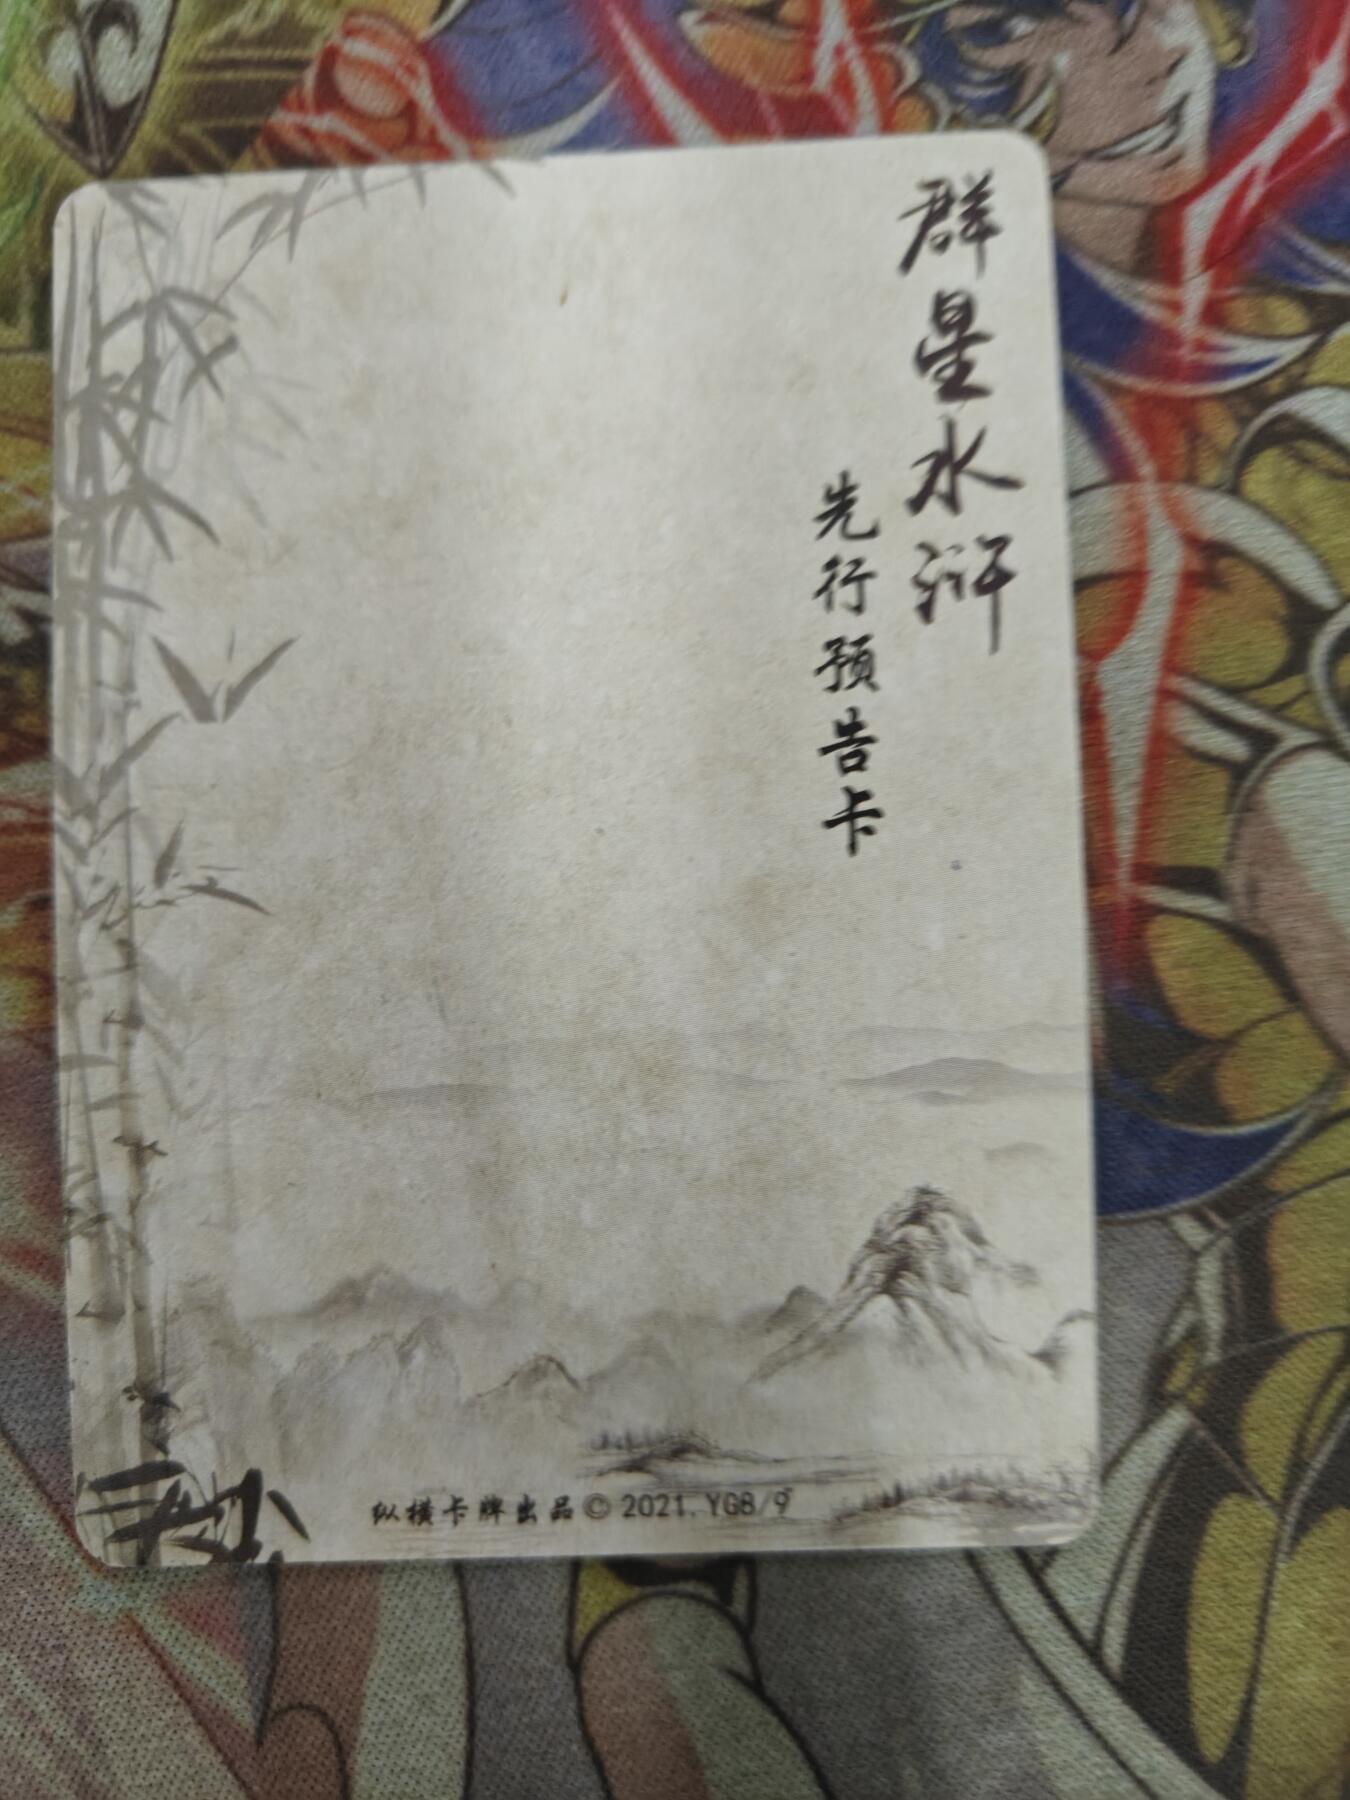 群星水浒
先行预告卡
纵横卡牌出品© 2021.YG8/9